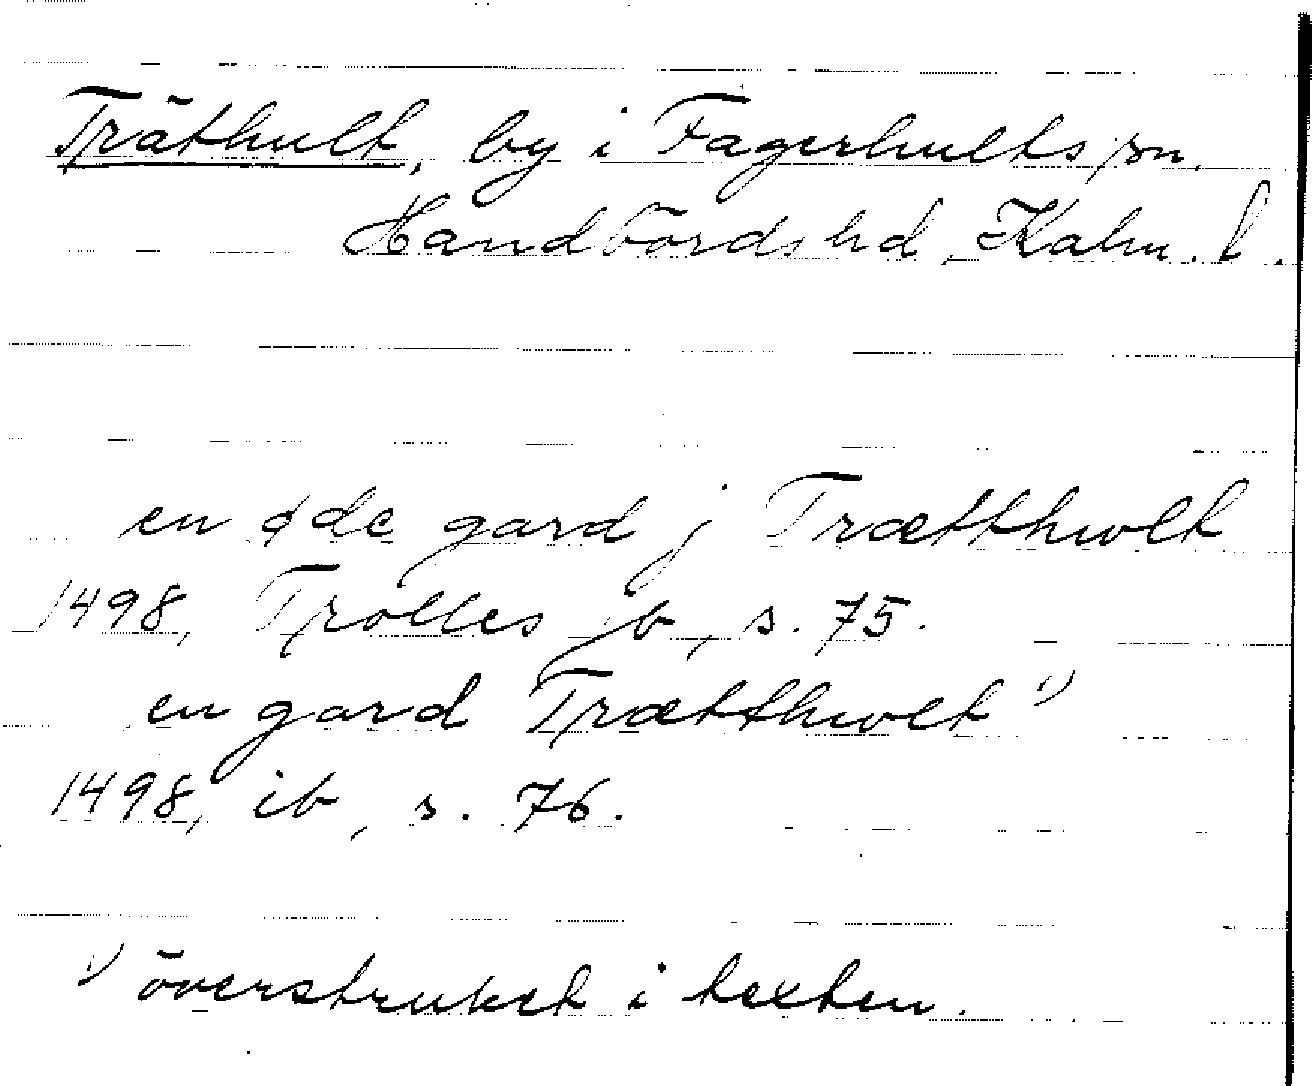 Träthult, by i Fagerhults sn.
Handbörds hd, Kalm. l.
en øde gard j Trætthwlt
1498, Trolles jb, s. 75.
en gard Trætthwlt ¹⁾
1498, ib, s. 76.
¹⁾ överstruket i texten.